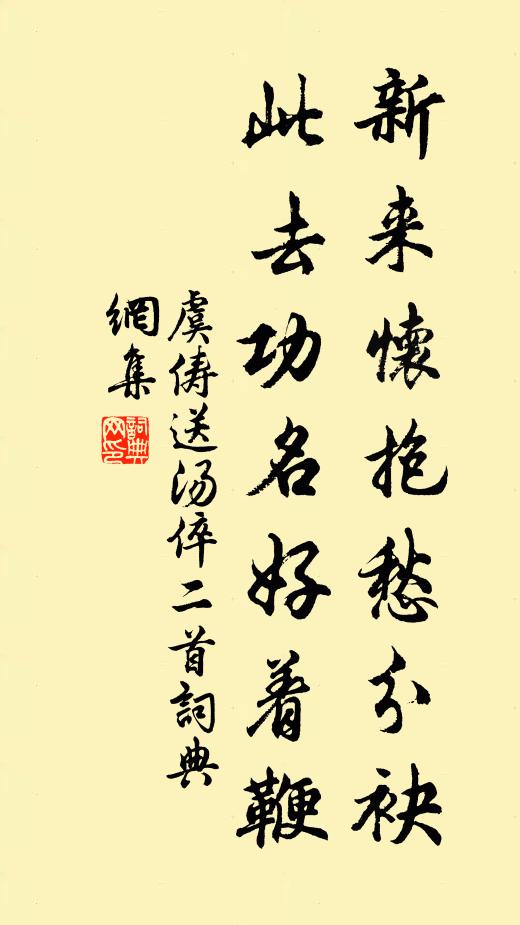 新来懷抱愁分袂
此去功名好着鞭
虞俦送汤倅二首詞典
網集
詞典
网印